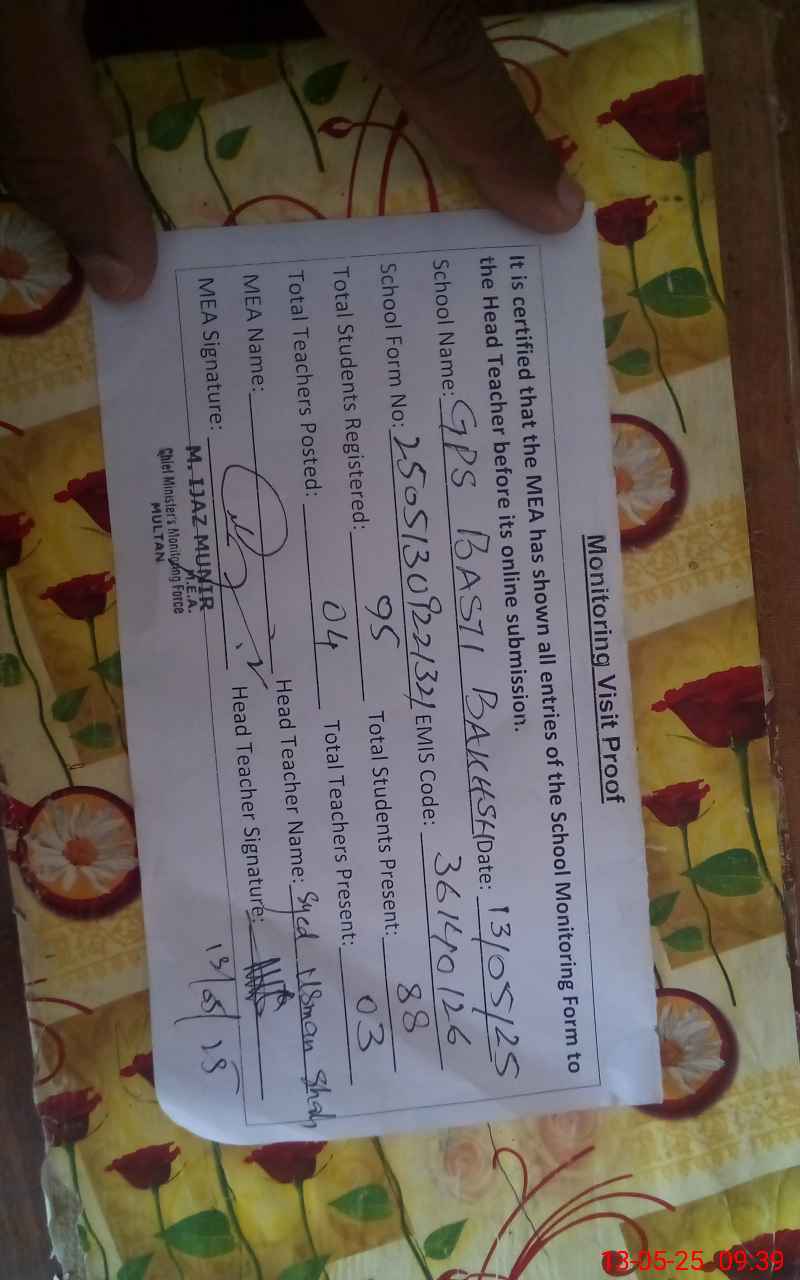 Monitoring Visit Proof
It is certified that the MEA has shown all entries of the School Monitoring Form to
the Head Teacher before its online submission.
School Name: GPS BASTI BAKHSH Date: 13/05/25
School Form No: 25051309221321 EMIS Code: 36140126
Total Students Registered: 95 Total Students Present: 88
Total Teachers Posted: 04 Total Teachers Present: 03
MEA Name: Head Teacher Name: Syed Usman Shah
MEA Signature: Head Teacher Signature:
13/05/25
M. IJAZ MUNIR
M.E.A.
Chief Minister's Monitoring Force
MULTAN
13-05-25 09:39